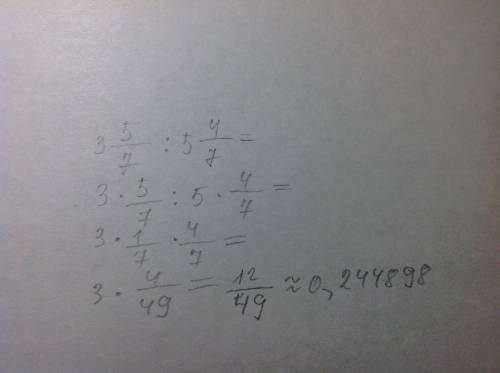 3 5/7 : 5 4/7 =
3 · 5/7 : 5 · 4/7 =
3 · 1/7 · 4/7 =
3 · 4/49 = 12/49 ≈ 0, 244898